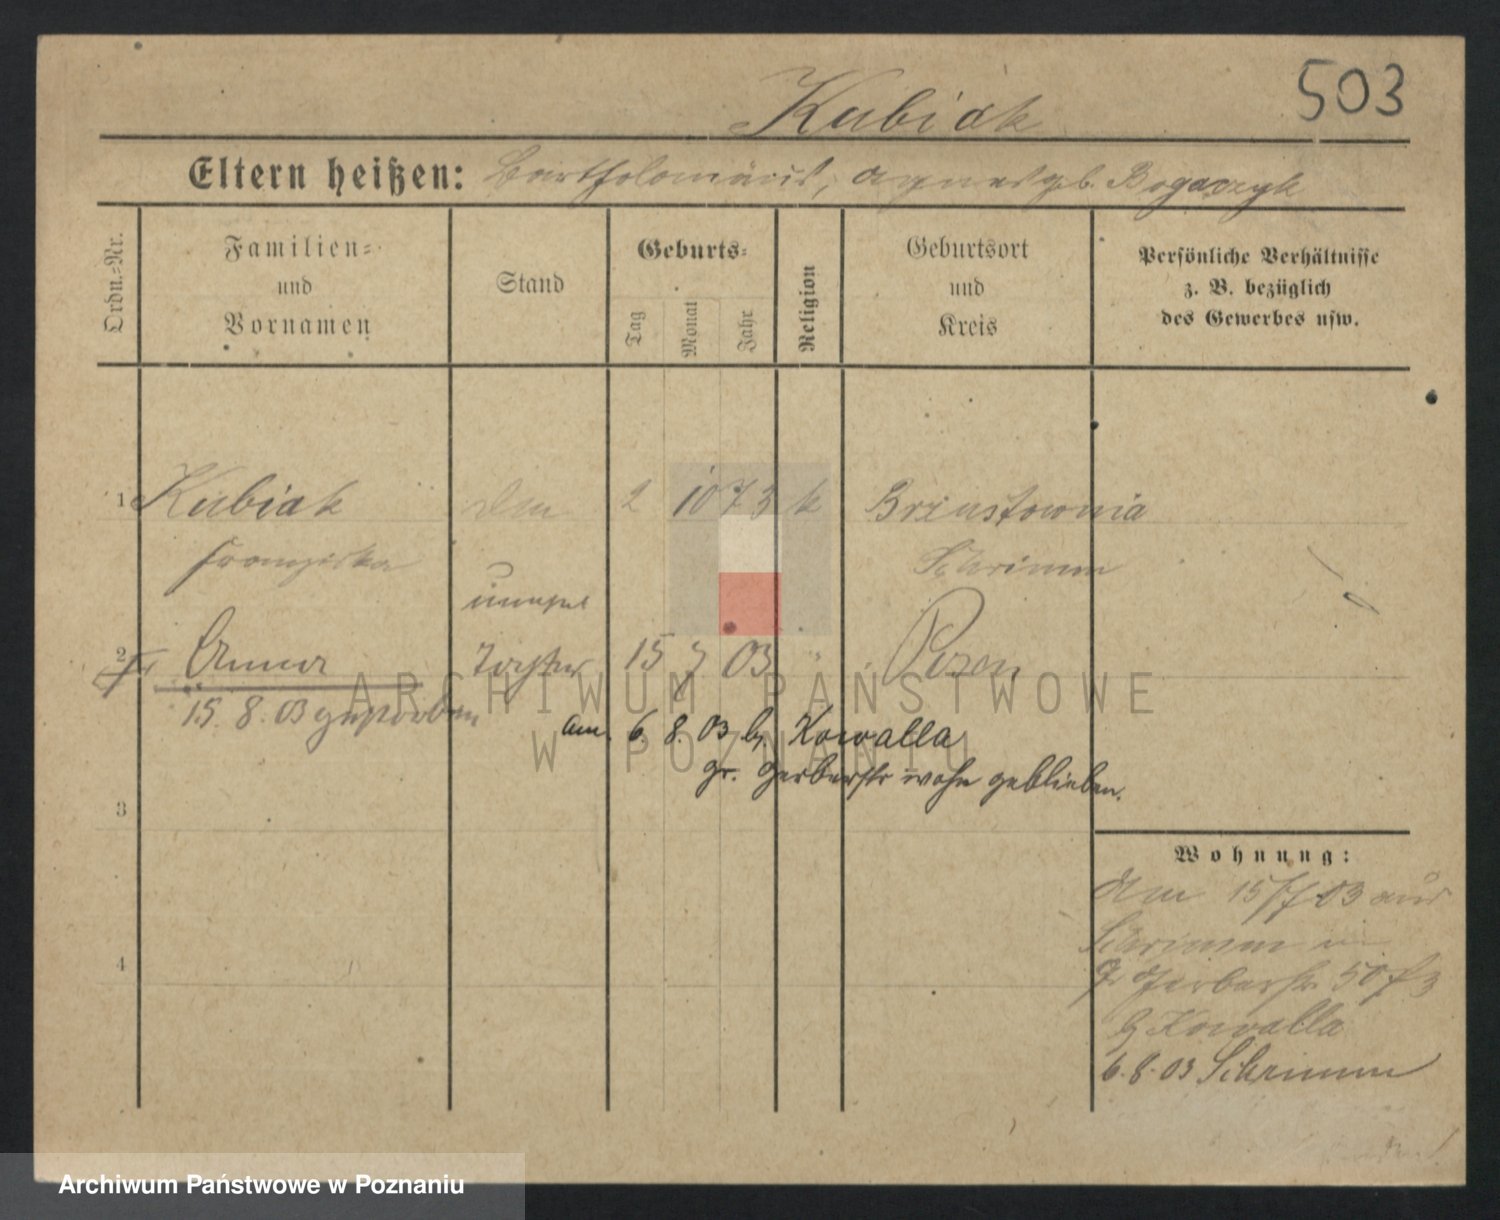 503
Kubiak
Eltern heißen: Bartholomäus, Agnes gb. Bogaczyk
Ordn.=Nr.
Familien=
und
Vornamen
Stand
Geburts=
Tag
Monat
Jahr
Religion
Geburtsort
und
Kreis
Persönliche Verhältnisse
z. B. bezüglich
des Gewerbes usw.
1 Kubiak 2 10 73 k Brzustownia
Franziska Schrimm
unehel
2 Anna Tochter 15 7 03 " Posen
15. 8. 03 gestorben
am 6. 8. 03 b. Kowalla
gr. Gerberstr wohn geblieben.
3
4
Wohnung:
Am 15/7 03 aus
Schrimm
Gr Gerberstr 50
b Kowalla
6. 8. 03 Schrimm
ARCHIWUM PAŃSTWOWE
W POZNANIU
Archiwum Państwowe w Poznaniu